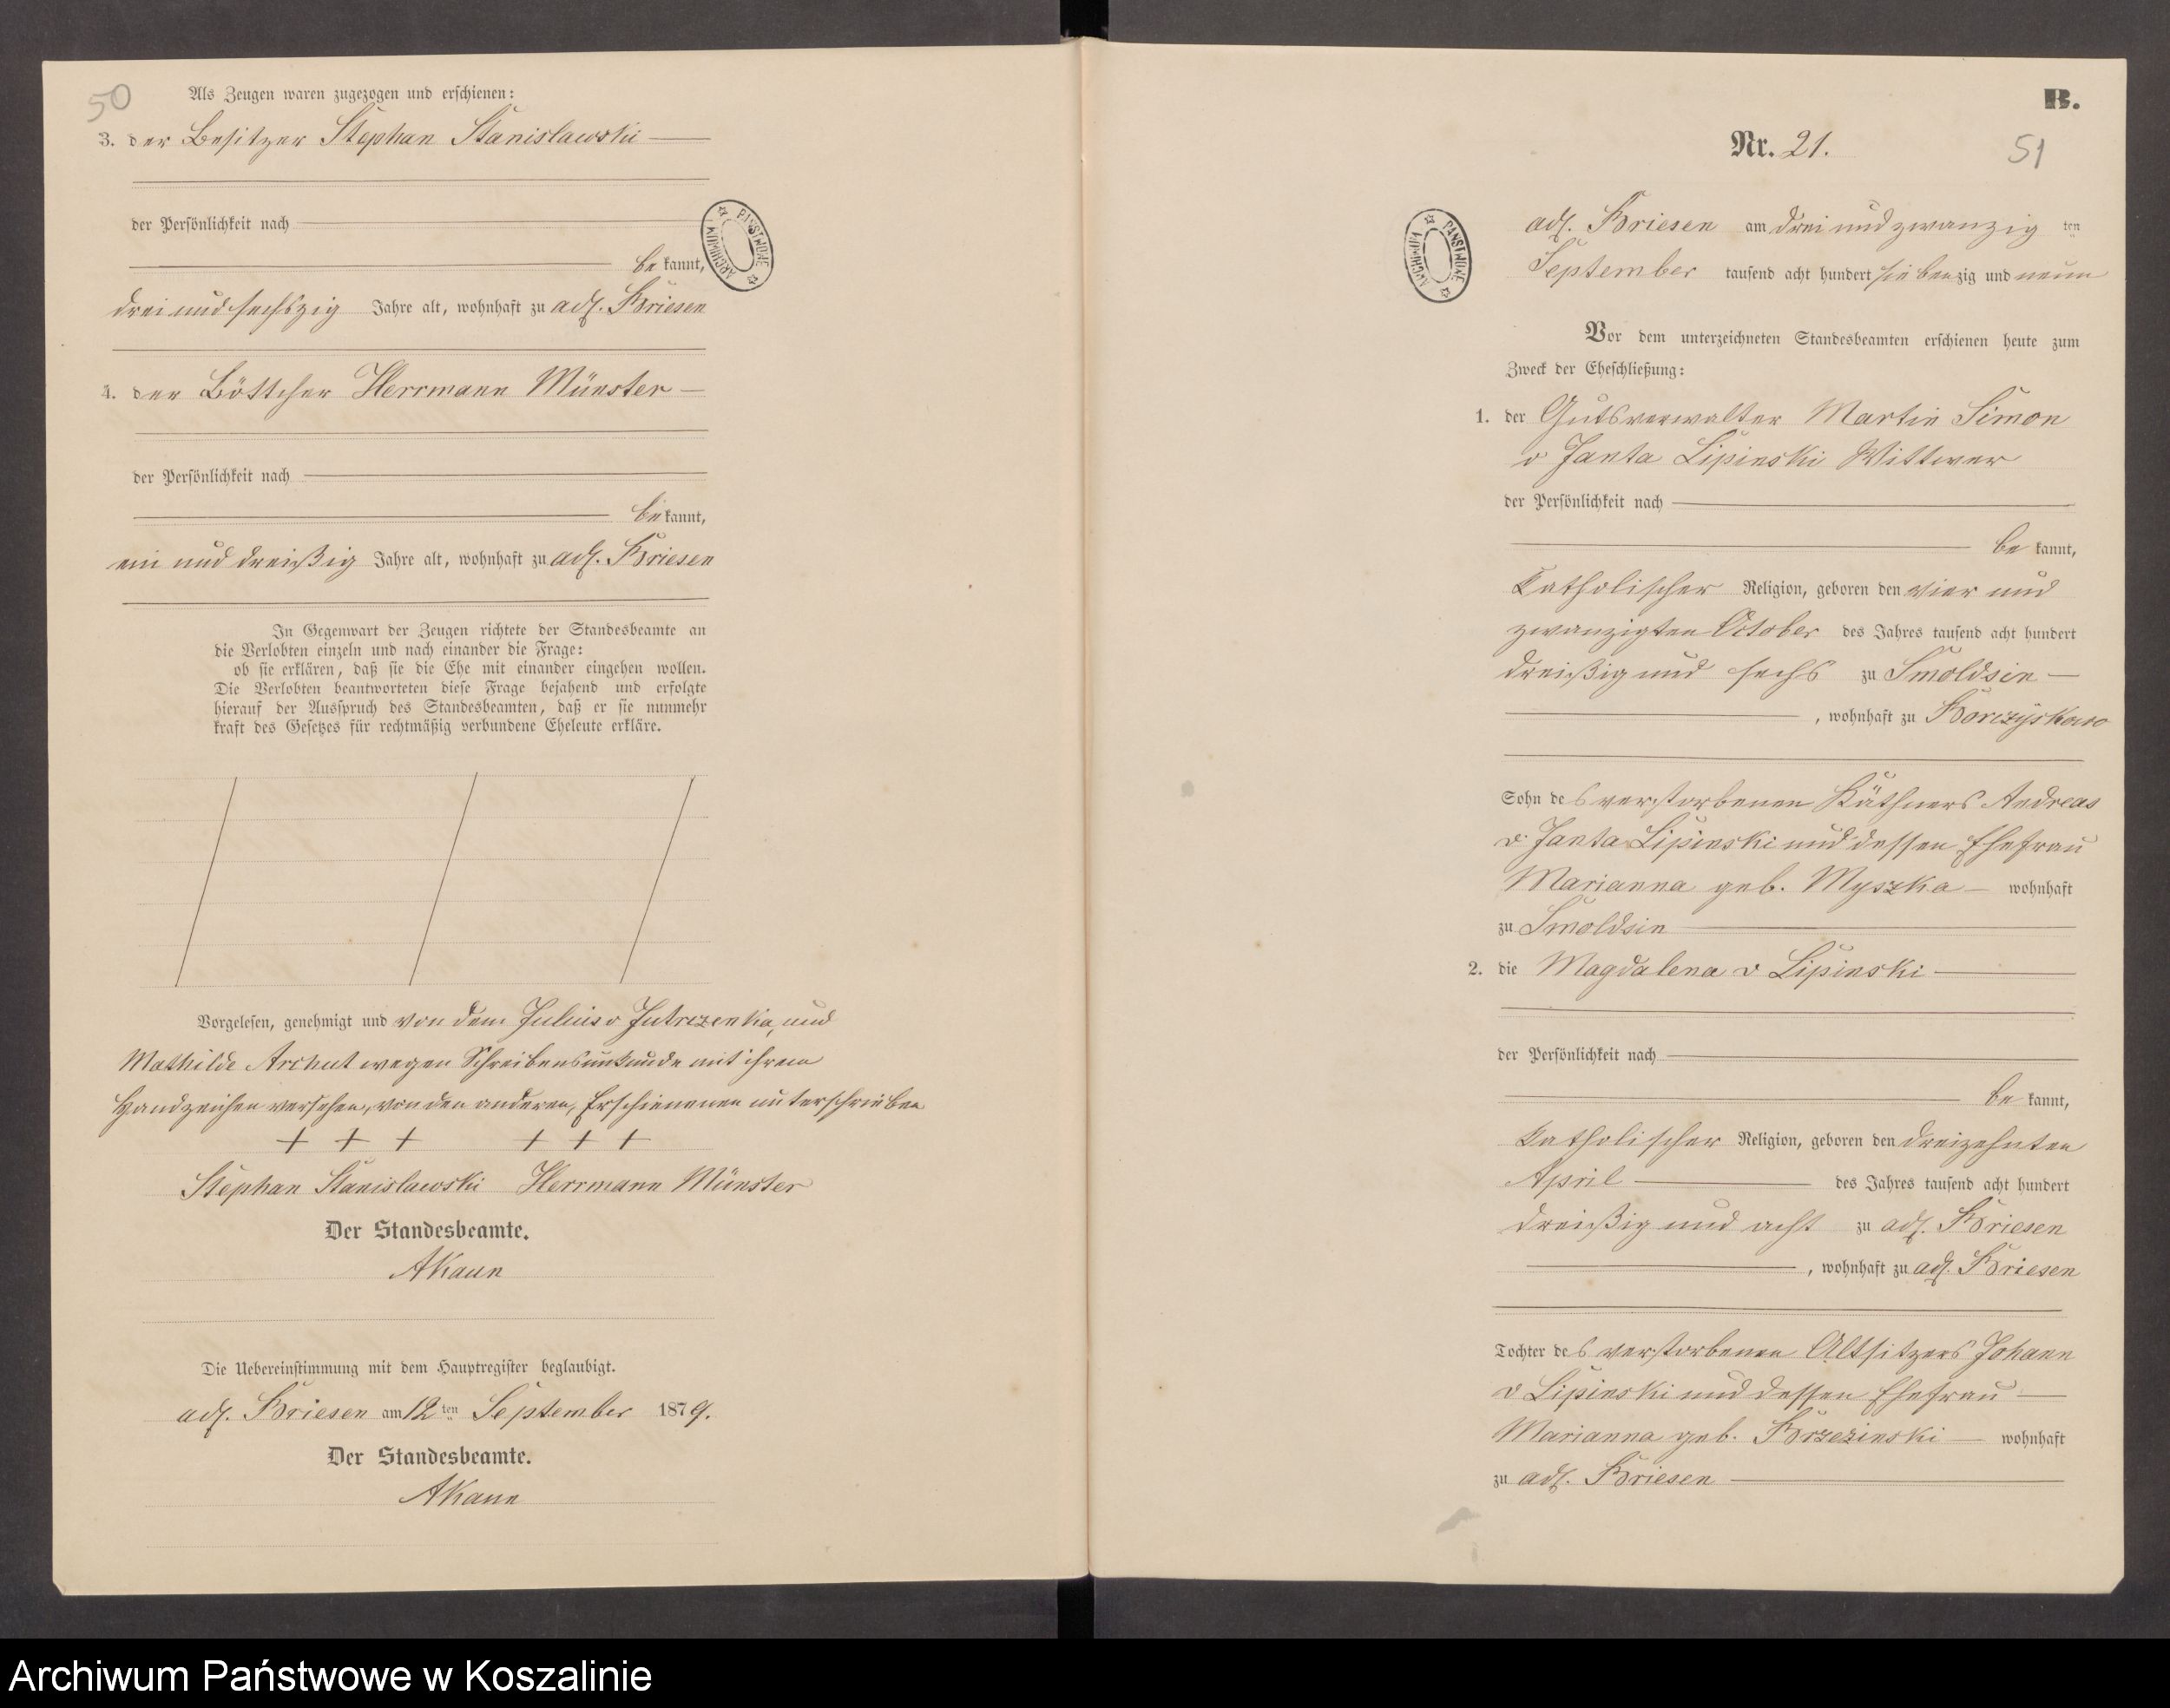 50
Als Zeugen waren zugezogen und erschienen:
3. der Besitzer Stephan Stanislawski
der Persönlichkeit nach
bekannt,
drei und sechszig Jahre alt, wohnhaft zu adl. Briesen
4. der Böttcher Herrmann Münster
der Persönlichkeit nach
bekannt,
ein und dreißig Jahre alt, wohnhaft zu adl. Briesen
In Gegenwart der Zeugen richtete der Standesbeamte an
die Verlobten einzeln und nach einander die Frage:
ob sie erklären, daß sie die Ehe mit einander eingehen wollen.
Die Verlobten beantworteten diese Frage bejahend und erfolgte
hierauf der Ausspruch des Standesbeamten, daß er sie nunmehr
kraft des Gesetzes für rechtmäßig verbundene Eheleute erkläre.
Vorgelesen, genehmigt und von dem Julius v Jutrzenka, und
Mathilde Archut wegen Schreibensunkunde mit ihrem
Handzeichen versehen, von den anderen, Erschienenen unterschrieben
+ + + + + +
Stephan Stanislawski Herrmann Münster
Der Standesbeamte.
AKaun
Die Uebereinstimmung mit dem Hauptregister beglaubigt.
adl. Briesen am 12ten September 1879.
Der Standesbeamte.
AKaun
ARCHIWUM PAŃSTWOWE
B.
Nr. 21.
51
ARCHIWUM PAŃSTWOWE
adl. Briesen am drei und zwanzig ten
September tausend acht hundert siebenzig und neun
Vor dem unterzeichneten Standesbeamten erschienen heute zum
Zweck der Eheschließung:
1. der Gutsverwalter Martin Simon
v Janta Lipinski Wittwer
der Persönlichkeit nach
be kannt,
Katholischer Religion, geboren den vier und
zwanzigten October des Jahres tausend acht hundert
dreißig und sechs zu Smoldsin
, wohnhaft zu Borczyskowo
Sohn des verstorbenen Käthners Andreas
v. Janta Lipinski und dessen Ehefrau
Marianna geb. Myszka wohnhaft
zu Smoldsin
2. die Magdalena v Lipinski
der Persönlichkeit nach
be kannt,
Katholischer Religion, geboren den dreizehnten
April des Jahres tausend acht hundert
dreißig und acht zu adl. Briesen
, wohnhaft zu adl. Briesen
Tochter des verstorbenen Altsitzers Johann
v Lipinski und dessen Ehefrau
Marianna geb. Brzezinski wohnhaft
zu adl. Briesen
Archiwum Państwowe w Koszalinie